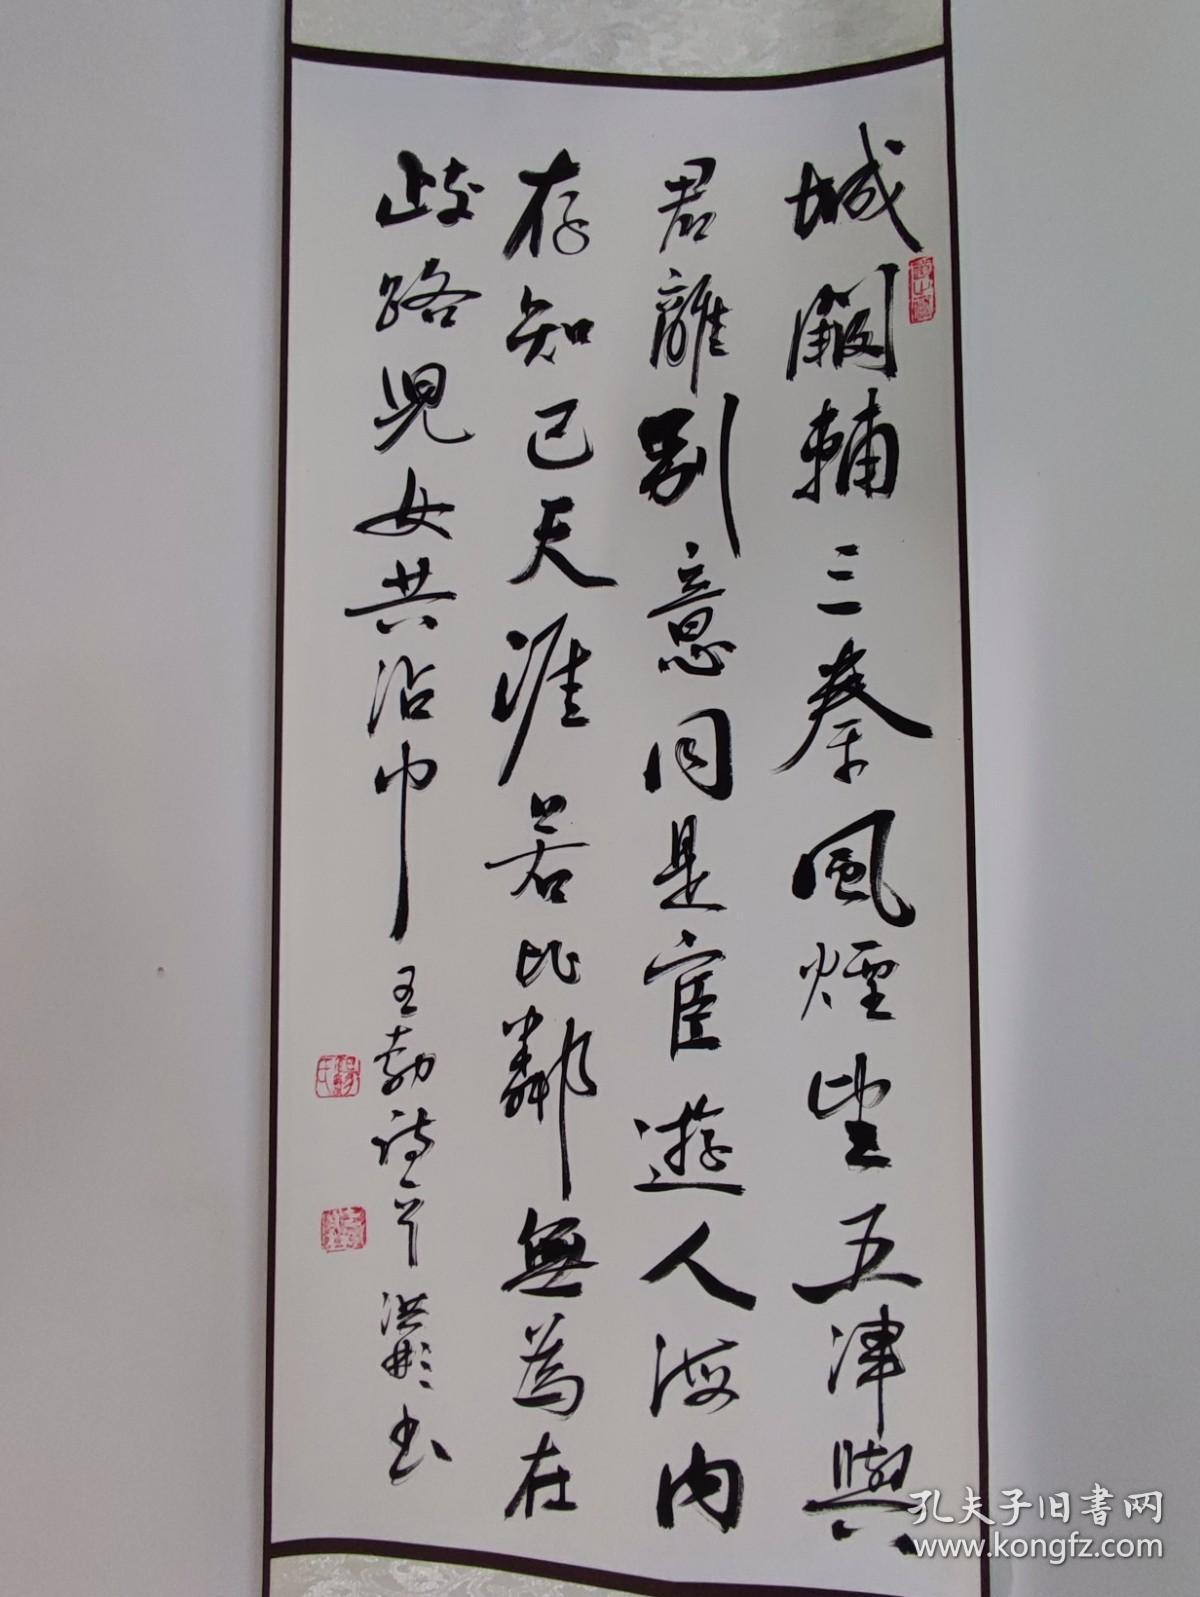 城闕輔三秦風煙望五津與
君離别意同是宦遊人海内
存知己天涯若比鄰無為在
歧路兒女共沾巾 王勃诗一首 洪彬书
孔夫子旧书网
www.kongfz.com